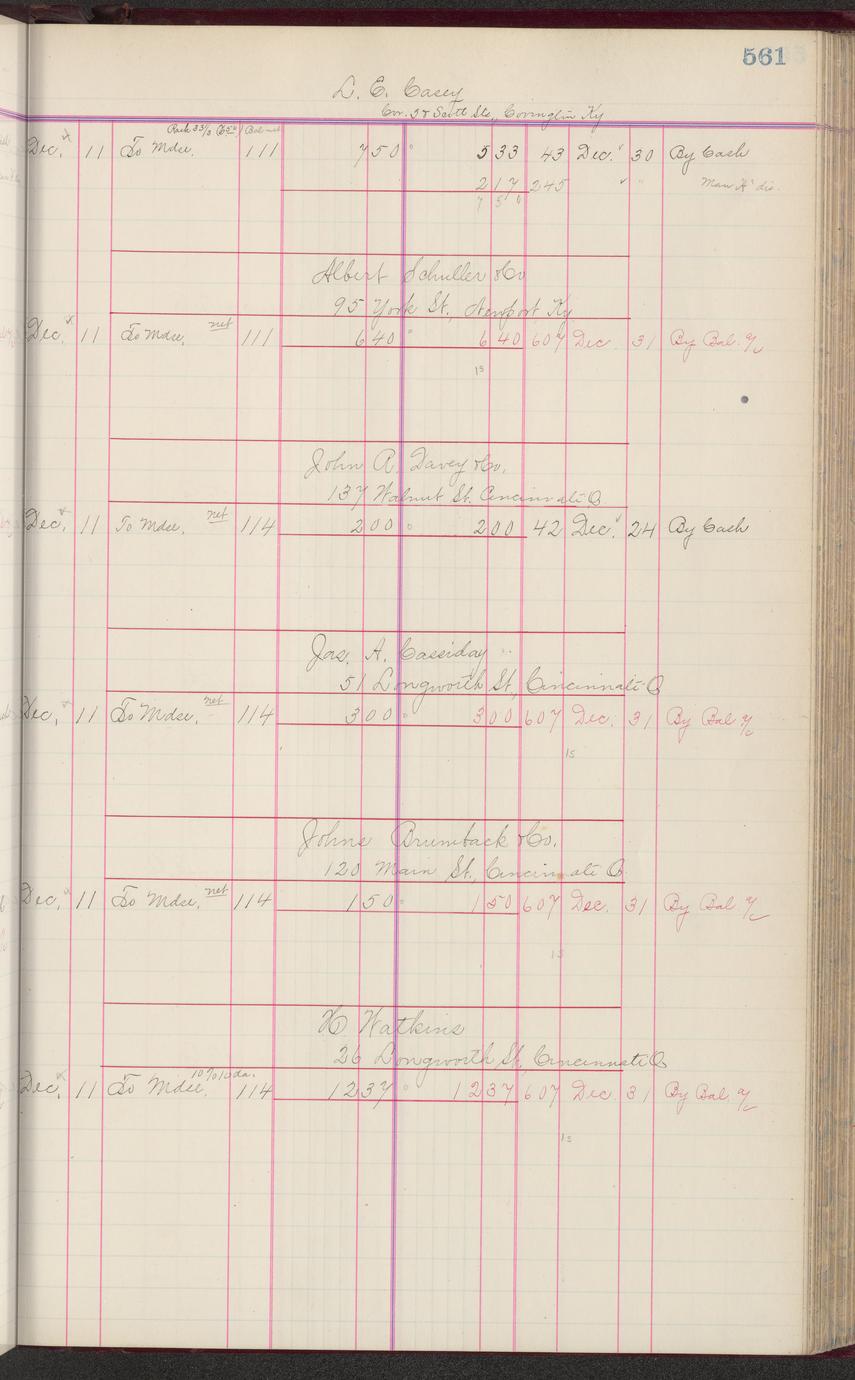 561
L. E. Casey
Cor. 5th & Scott Sts., Covington Ky
Rack 33 1/3 Bal net
Dec. 11 To Mdse. 111 7 50 5 33 43 Dec. 30 By Cash
2 17 245 " dis.
7 50
Albert Schuller & Co
95 York St., Newport Ky
Dec. 11 To Mdse. net 111 6 40 6 40 607 Dec. 31 By Bal. a/c
15
John A. Davey & Co.
137 Walnut St. Cincinnati O
Dec. 11 To Mdse. net 114 2 00 2 00 42 Dec. 24 By Cash
Jas. A. Cassiday
51 Longworth St., Cincinnati O
Dec. 11 To Mdse. net 114 3 00 3 00 607 Dec. 31 By Bal a/c
15
Johns Brumback & Co.
120 Main St., Cincinnati O.
Dec. 11 To Mdse. net 114 1 50 1 50 607 Dec. 31 By Bal. a/c
15
H Watkins
26 Longworth St. Cincinnati O
Dec. 11 To Mdse. 10% 10 da. 114 12 37 12 37 607 Dec. 31 By Bal. a/c
15